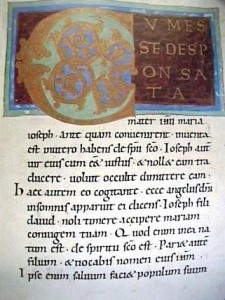 CVMES
SEDESP
ONSA
TA
mater ihu maria
ioseph · ante quam convenirent · inventa
est in utero habens de spu sco · Ioseph aut
vir eius cum eet iustus · & nollet eam tra
ducere · voluit occulte dimittere eam ·
hac autem eo cogitante · ecce angelus dni
insomnis apparuit ei dicens · Ioseph fili
david · noli timere accipere mariam
coniugem tuam · Quod enim in ea na
tum est · de spiritu sco est · Pariet aute
filium · & vocabis nomen eius ihm
Ipse enim salvum faciet populum suum